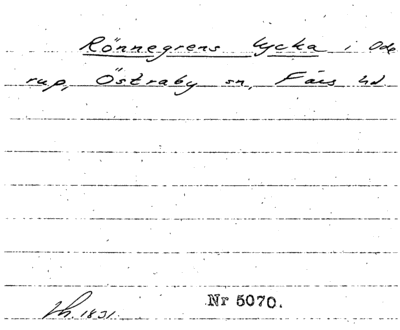 Rönnegrens lycka i Ode
rup, Östraby sn, Färs hd.
Lh. 1831.
Nr 5070.